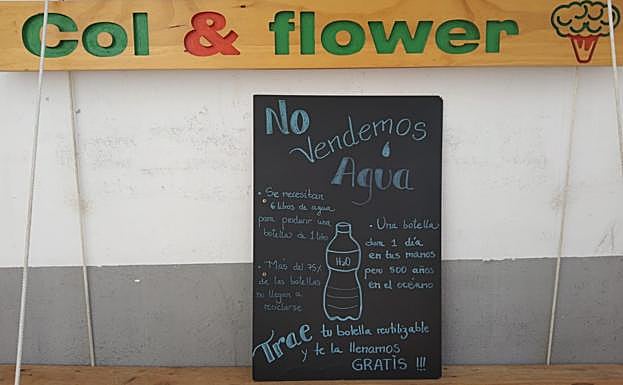 Col & flower
No
Vendemos
Agua
• Se necesitan
6 libros de agua
para producir una
botella de 1 litro
• Una botella
dura 1 día
en tus manos
pero 500 años
en el océano
H2O
• Más del 75%
de las botellas
no llegan a
reciclarse
Trae tu botella reutilizable
y te la llenamos
GRATIS !!!